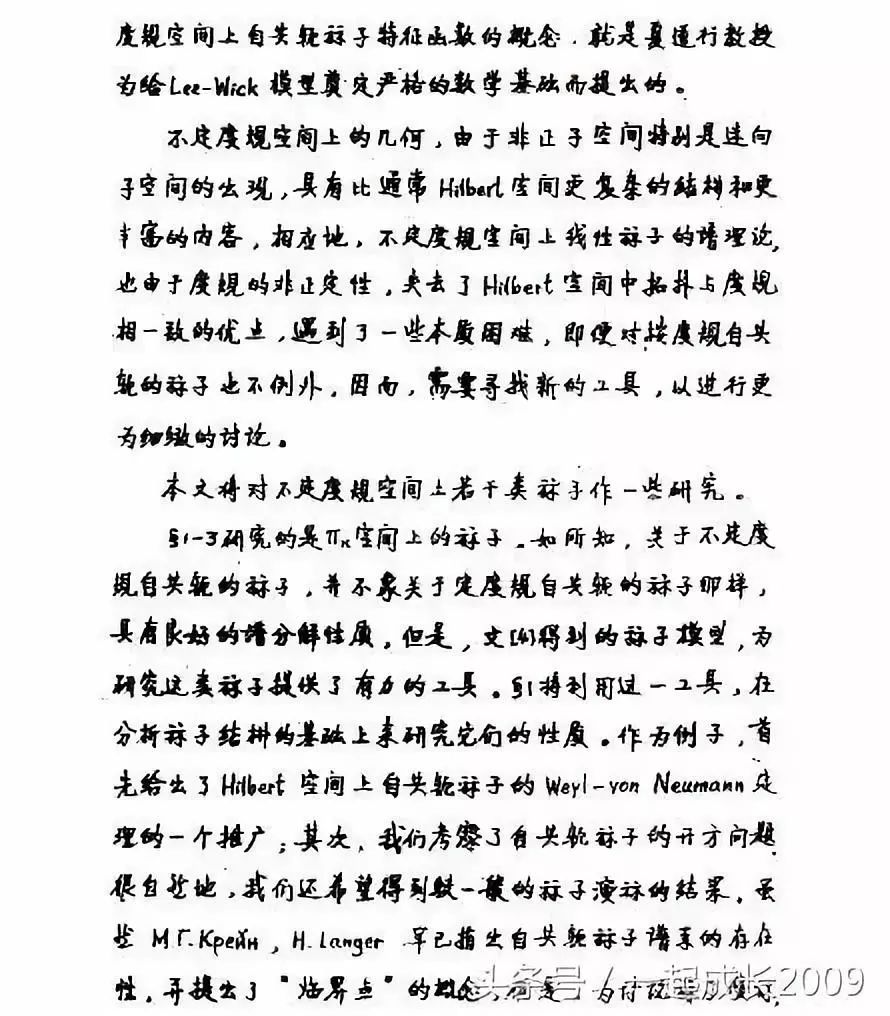 度规空间上自共轭祘子特征函数的概念,就是夏道行教授
为给Lee-Wick 模型奠定严格的数学基础而提出的。
不定度规空间上的几何,由于非正子空间特别是迷向
子空间的出现,具有比通常Hilbert空间更复杂的结构和更
丰富的内容,相应地,不定度规空间上线性祘子的谱理论,
也由于度规的非正定性,失去了Hilbert空间中拓扑与度规
相一致的优点,遇到了一些本质困难,即便对按度规自共
轭的祘子也不例外。因而,需要寻找新的工具,以进行更
为细致的讨论。
本文将对不定度规空间上若干类祘子作一些研究。
§1-3研究的是Πκ空间上的祘子。如所知,关于不定度
规自共轭的祘子,并不象关于定度规自共轭的祘子那样,
具有良好的谱分解性质。但是,文[4]得到的祘子模型,为
研究这类祘子提供了有力的工具。§1将利用这一工具,在
分析祘子结构的基础上来研究它们的性质。作为例子,首
先给出了Hilbert 空间上自共轭祘子的Weyl-von Neumann定
理的一个推广;其次,我们考察了自共轭祘子的开方问题
很自然地,我们还希望得到较一般的祘子演祘的结果。虽
然 М.Г.Крейн, H.Langer 早已指出自共轭祘子谱系的存在
性,并提出了“临界点”的概念,
头条号 / 一起成长2009